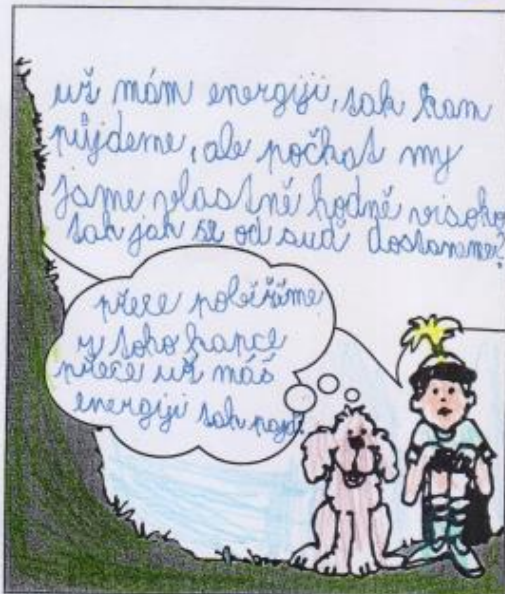 už mám energiji, tak kam
půjdeme, ale počkat my
jsme vlastně hodně visoko
tak jak se od sud dostaneme?
přece poběžíme
z toho kopce
přece už máš
energiji tak pojď!